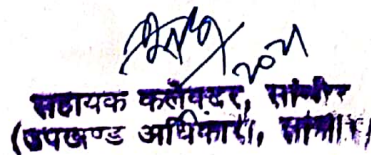 2021
सहायक कलेक्टर, सांभर
(उपखण्ड अधिकारी, सांभर)